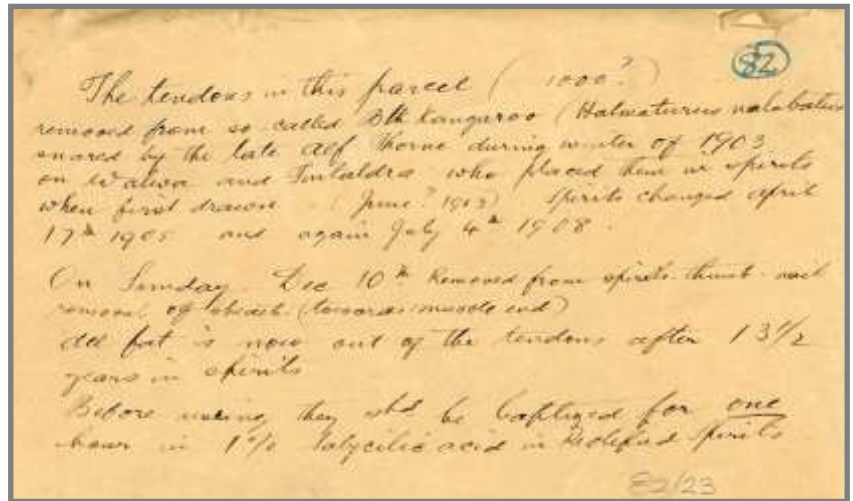 82
The tendons in this parcel ( 1000? )
removed from so called Blk Kangaroo (Halmaturus walabatus
snared by the late Alf Thorne during winter of 1903
on Walwa and Tintaldra who placed them in spirits
when first drawn (June? 1903) Spirits changed April
17th 1905 and again July 4th 1908.
On Sunday Dec 10th Removed from spirits. thumb-nail
removal of sheath (towards muscle end)
All fat is now out of the tendons after 13 1/2
years in spirits
Before using they shd be baptized for one
hour in 1% Salycilic acid in Rectified Spirits
82/23